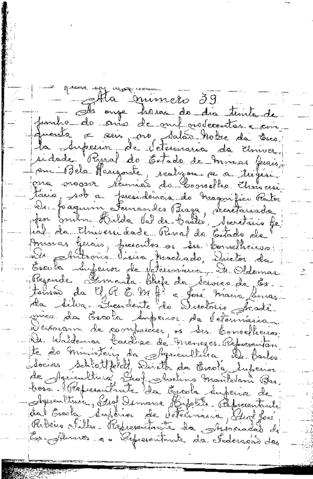 Ata número 39
Às onze horas do dia trinta de
junho do ano de mil novecentos e cin
quenta e seis, no Salão Nobre da Esco
la Superior de Veterinária da Univer
sidade Rural do Estado de Minas Gerais,
em Belo Horizonte, realizou-se a
reunião do Conselho Universi
tário, sob a presidência do Magnífico Reitor
Dr. Joaquim Fernandes Braga, secretariada
por mim Hilda Val de Secretária Ge
ral da Universidade Rural do Estado de
Minas Gerais, presentes os srs. Conselheiros:
Dr. Antônio Vieira Machado, Diretor da
Escola Superior de Veterinária, Dr. Oldemar
Rezende Chefe do Serviço de Ex
tensão da U.R.E.M.G. e José Maria
da Silva, Presidente do Diretório Acadê
mico da Escola Superior de Veterinária.
Deixaram de comparecer os srs. Conselheiros
Dr. Waldemar de Menezes, Representan
te do Ministério da Agricultura, Dr. Carlos
Socias Schlottfeldt, Diretor da Escola Superior
de Agricultura, Prof. Bar
bosa, Representante da Escola Superior de
Agricultura, Prof. Representante
da Escola Superior de Veterinária, Prof. José
Ribeiro Filho, Representante da Associação de
Ex-Alunos e o Representante da Federação das